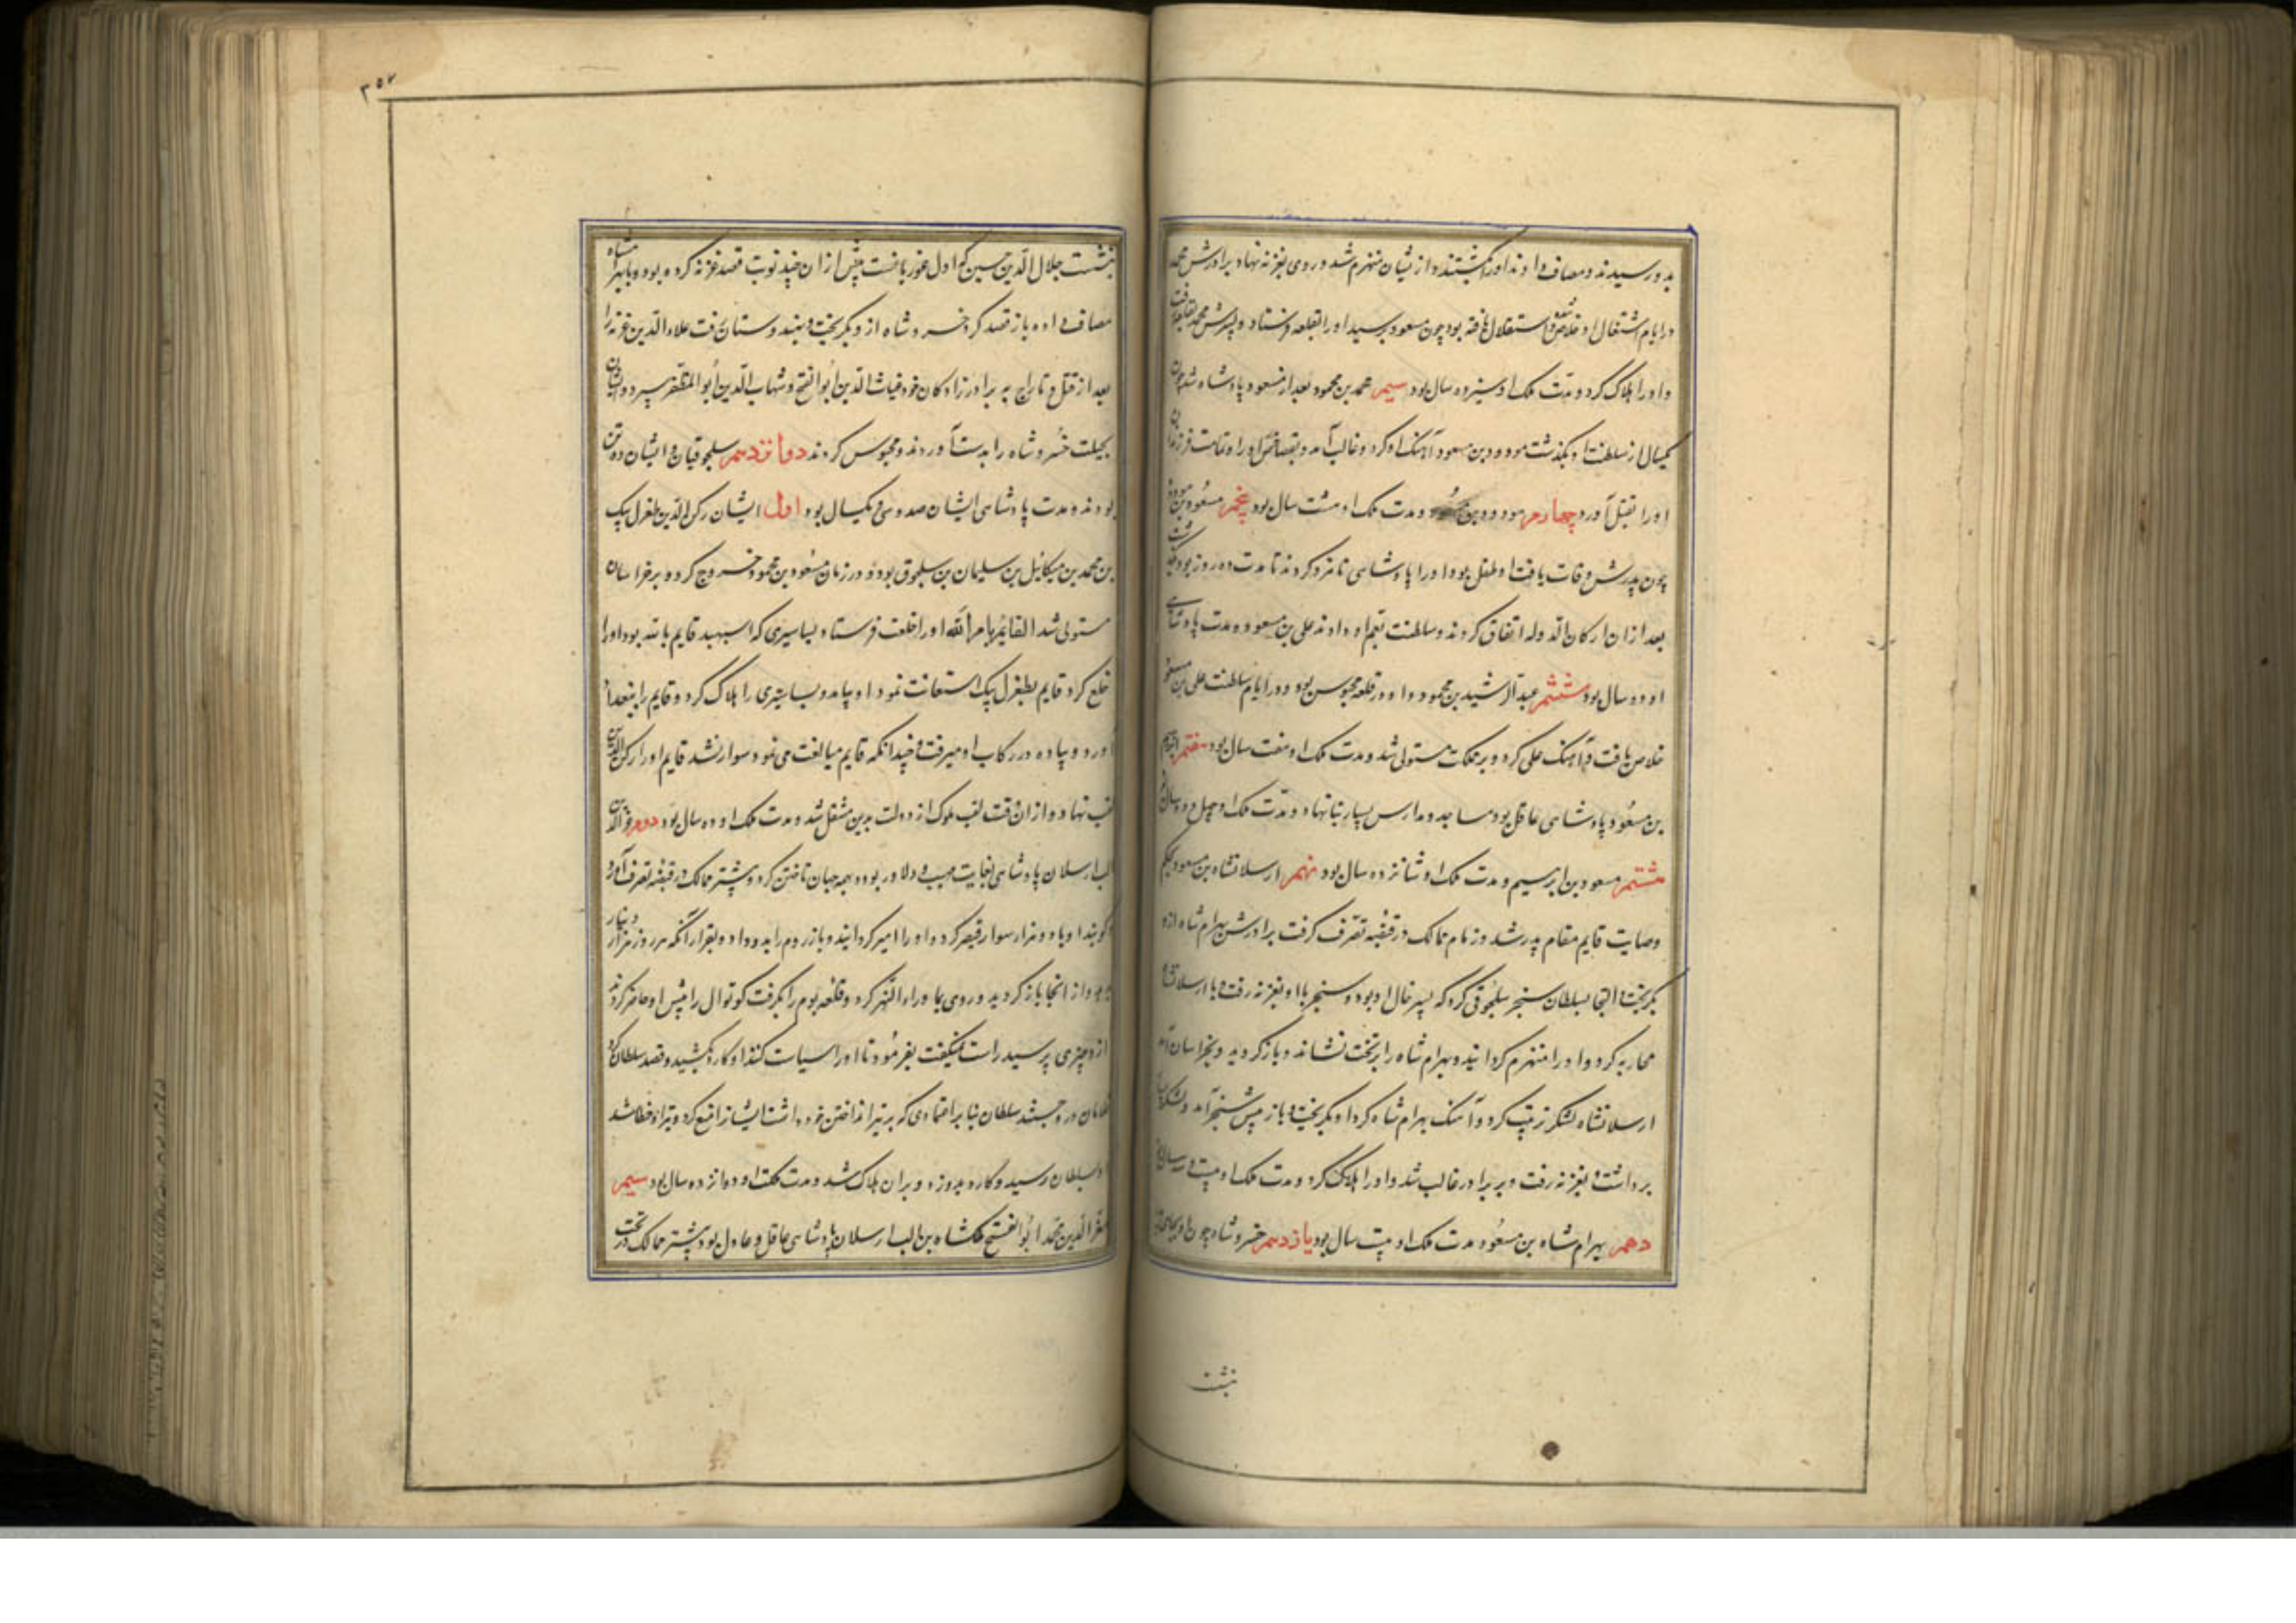 بدو رسیدند و مصاف دادند او را بکشتند و از یشان منهزم شد و روی بغزنه نهاد برادرش محمد
در ایام اشتغال او خلاص و استقلال یافته بود چون مسعود برسید او را بقلعه فرستاد و پسرش محمد
و او را هلاک کرد و مدت ملک او سیزده سال بود سیم محمد بن محمود بعد از مسعود پادشاه شد چون
یکسال از سلطنت او بگذشت مودود بن مسعود آهنگ او کرد و غالب آمد و بقصاص او را و تمامت فرزندان
او را بقتل آورد چهارم مودود بن مسعود و مدت ملک او هشت سال بود پنجم مسعود بن مودود
چون پدرش وفات یافت او طفل بود او را پادشاهی نامزد کردند تا مدت ده روز بود
بعد ازان ارکان الدوله اتفاق کردند و سلطنت بعم او دادند علی بن مسعود و مدت پادشاهی
او دو سال بود ششم عبد الرشید بن محمود و او در قلعه محبوس بود و در ایام سلطنت علی بن مسعود
خلاص یافت و آهنگ علی کرد و بر مملکت مستولی شد و مدت ملک او هفت سال بود هفتم ابرهیم
بن مسعود پادشاهی عاقل بود مساجد و مدارس بسیار بنا نهاد و مدت ملک او چهل و دو سال
هشتم مسعود بن ابرهیم و مدت ملک او شانزده سال بود نهم ارسلانشاه بن مسعود بحکم
وصایت قایم مقام پدر شد و زمام ممالک در قبضه تصرف گرفت برادرش بهرام شاه ازو
بگریخت و التجا بسلطان سنجر سلجوقی کرد که پسر خال او بود و سنجر با او بغزنه رفت و با ارسلانشاه
محاربه کرد و او را منهزم کردانید و بهرام شاه را بر تخت نشاند و باز کردید و بخراسان آمد
ارسلانشاه لشکر ترتیب کرد و آهنگ بهرام شاه کرد او بگریخت و باز پیش سنجر آمد و لشکر
برداشت و بغزنه رفت و بر برادر غالب شد و او را هلاک کرد و مدت ملک او بیست و سال
دهم بهرام شاه بن مسعود مدت ملک او بیست سال بود یازدهم خسرو شاه چون او بجای پدر
بنشست
٣٥٧
بنشست جلال الدین حسین که اول غور یافت پیش ازان چند نوبت قصد غزنه کرده بود و با بهرامشاه
مصاف داده باز قصد کرد خسرو شاه ازو بگریخت و بهندوستان رفت علاء الدین غزنه را
بعد از قتل و تاراج به برادرزادکان خود غیاث الدین ابو الفتح و شهاب الدین ابو المظفر سپرد و ایشان
بحیلت خسرو شاه را بدست آوردند و محبوس کردند دوازدهم سلجوقیان و ایشان ده تن
بودند و مدت پادشاهی ایشان صد و سی و یکسال بود اول ایشان رکن الدین طغرل بیک
بن محمد بن میکائیل بن سلیمان بن سلجوق بود و در زمان مسعود بن محمود خروج کرد و بر خراسان
مستولی شد القایم بامر الله او را خلعت فرستاد بساسیری که اسپهبد قایم بالله بود او را
خلع کرد قایم بطغرل بیک استعانت نمود او بیامد و بساسیری را هلاک کرد و قایم را ببغداد
آورد و پیاده در رکاب او میرفت و چندانکه قایم مبالغت می نمود سوار نشد قایم او را رکن الدین
لقب نهاد و از ان وقت لقب ملوک از دولت بدین منتقل شد و مدت ملک او ده سال بود دوم عز الدین
الب ارسلان پادشاهی بغایت مهیب و دلاور بود و بهمه جهان تاختن کرد و بیشتر ممالک در قبضه تصرف آورد
کویند او با دو هزار سوار قیصر کرد و او را اسیر کردانید و باز روم را بدو داد و بقرار آنکه هر روز هزار دینار
بدهد و از انجا باز کردید و روی بما وراء النهر کرد و قلعه بوم را بگرفت کوتوال را پیش او حاضر کردند
ازو چیزی پرسید راست نمیگفت بفرمود تا او را سیاست کنند او کارد بکشید و قصد سلطان کرد
غلامان در و جستند سلطان بنا بر اعتمادی که بر تیر انداختن خود داشت ایشانرا منع کرد و تیر او خطا شد
او بسلطان رسید و کارد بدو زد و بر ان هلاک شد و مدت ملکت او دوازده سال بود سیم
معز الدین محمد ابو الفتح ملکشاه بن الب ارسلان پادشاهی عاقل و عادل بود بیشتر ممالک در تحت